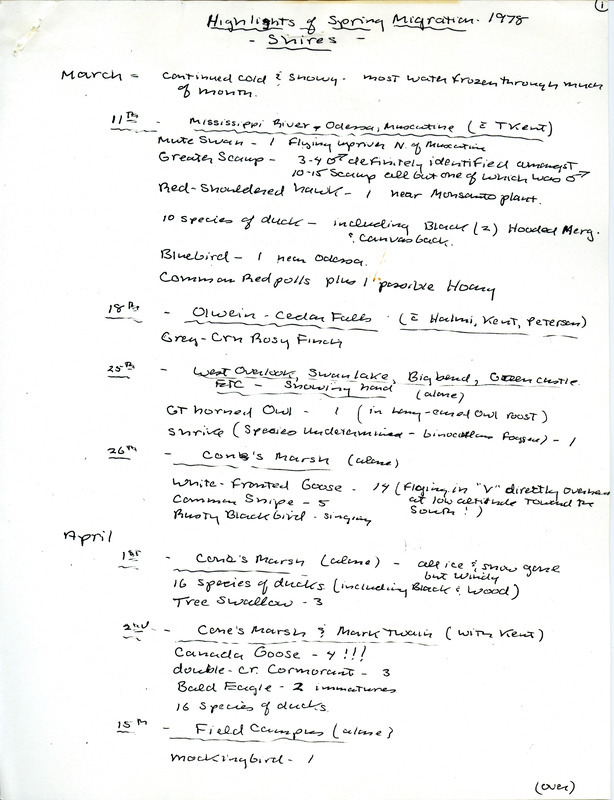 1
Highlights of Spring Migration. 1978
- Shires -
March = continued cold & snowy. most water frozen through much
of month.
11th - Mississippi River & Odessa, Muscatine (c̄ TKent)
Mute Swan - 1 Flying upriver N. of Muscatine
Greater Scaup - 3-4 ♂ definitely identified amongst
10-15 Scaup all but one of which was ♂
Red-Shouldered hawk - 1 near Monsanto plant.
10 species of duck - including Black (2) Hooded Merg.
& Canvasback.
Bluebird - 1 near Odessa.
Common Redpolls plus 1 possible Hoary
18th - Olwein - Cedar Falls (c̄ Halmi, Kent, Petersen)
Grey-Crn Rosy Finch
25th - West Overlook, Swan Lake, Big bend, Green castle
ETC - Snowing hard (alone)
GT horned Owl - 1 (in long-eared Owl roost)
Shrike (Species Undetermined - binoculars fogged) - 1
26th - Cone's Marsh (alone)
White-Fronted Goose - 14 (Flying in "V" directly overhead
at low altitude toward the
South!)
Common Snipe - 5
Rusty Blackbird - singing
April
1st - Cone's Marsh (alone) - all ice & snow gone
but windy
16 Species of ducks (including Black & Wood)
Tree Swallow - 3
2nd - Cone's Marsh & Mark Twain (with Kent)
Canada Goose - 4 !!!
double-cr. Cormorant - 3
Bald Eagle - 2 immatures
16 Species of ducks.
15th - Field Campus (alone)
Mockingbird - 1
(over)